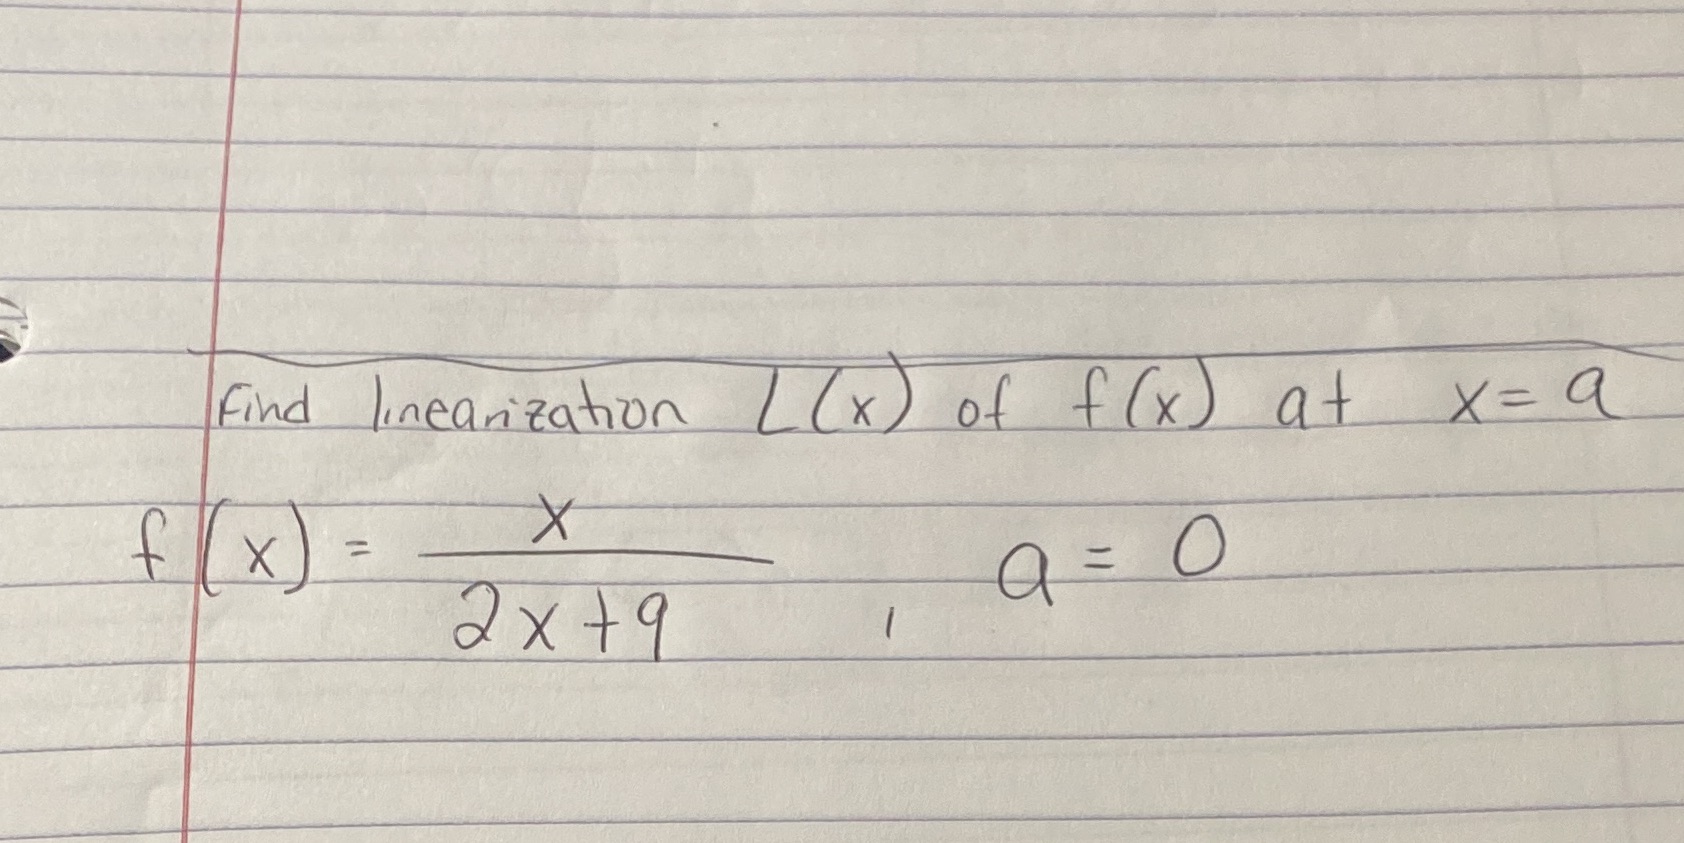 Find linearization L(x) of f(x) at x = a
f(x) = x / (2x+9) , a = 0